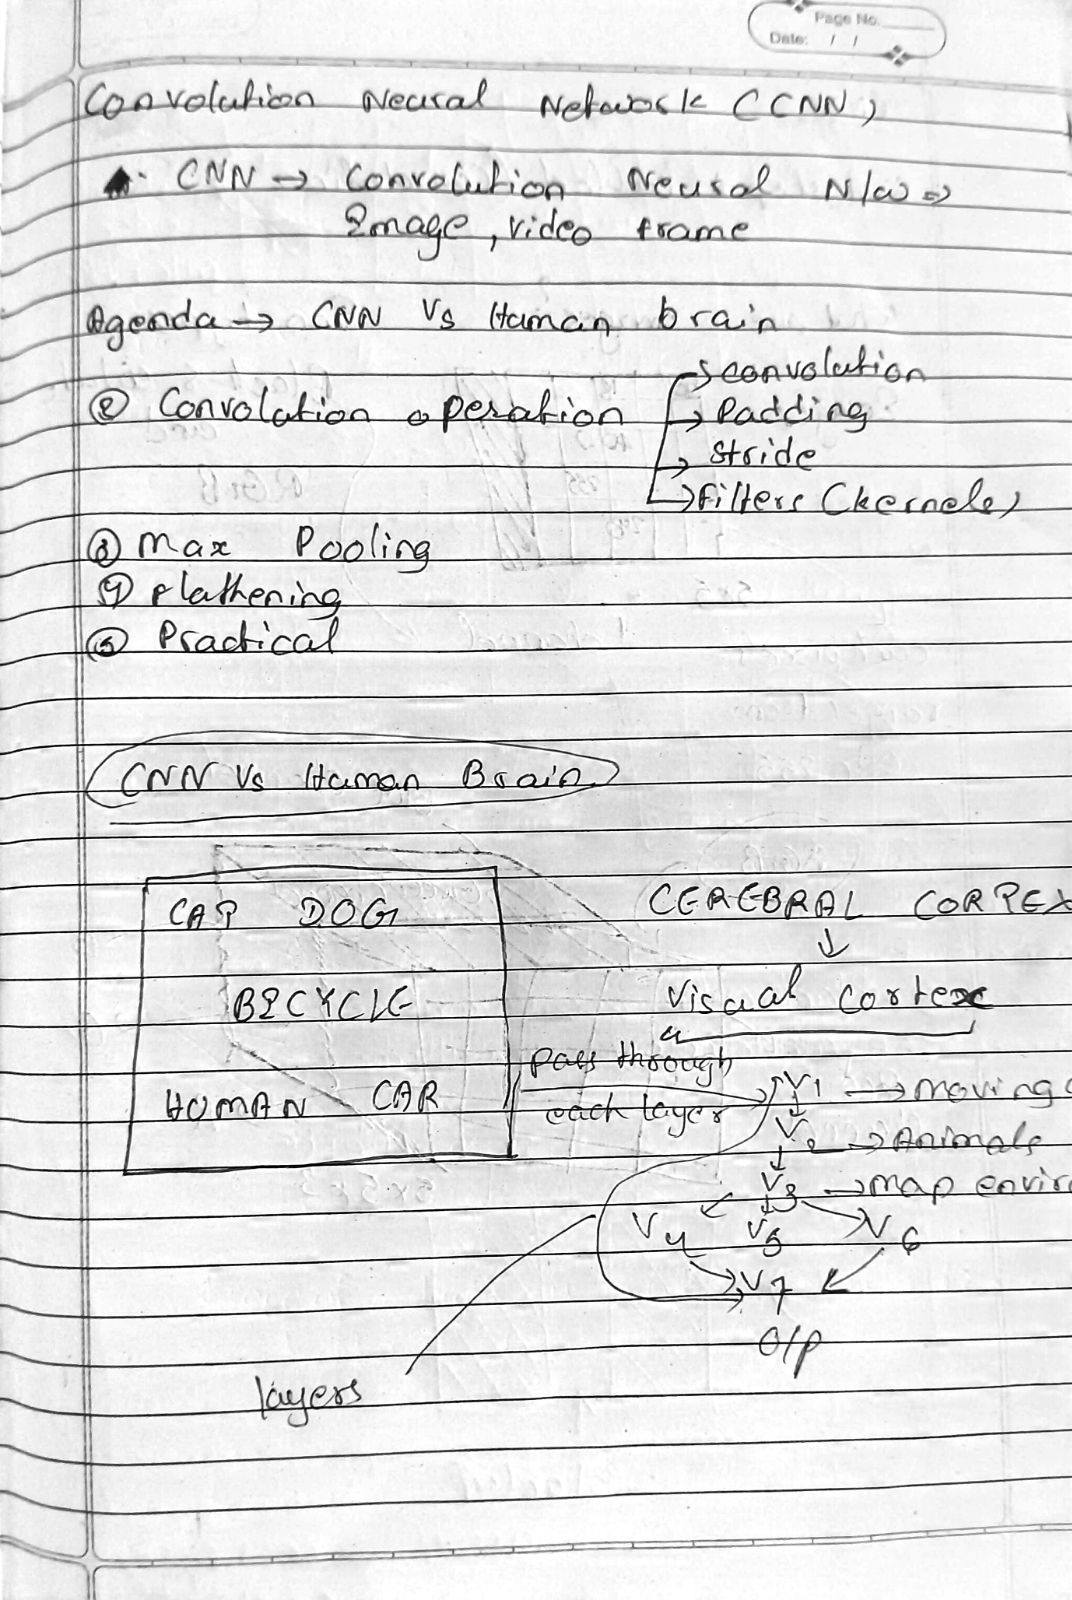 Page No.
Date: / /
Convolution Neural Network (CNN)
CNN → Convolution Neural N/w ⇒
Image, video frame
Agenda → CNN Vs Human brain
② Convolution operation → convolution
→ Padding
→ Stride
→ Filters (kernels)
③ Max Pooling
④ Flathening
⑤ Practical
CNN Vs Human Brain
CAT DOG
CEREBRAL CORTEX
↓
BICYCLE
Visual Cortex
pass through
each layer
HUMAN CAR
V1 → moving
V2 → Animals
V3 → map envir
V4 V5 V6
V7
O/P
layers